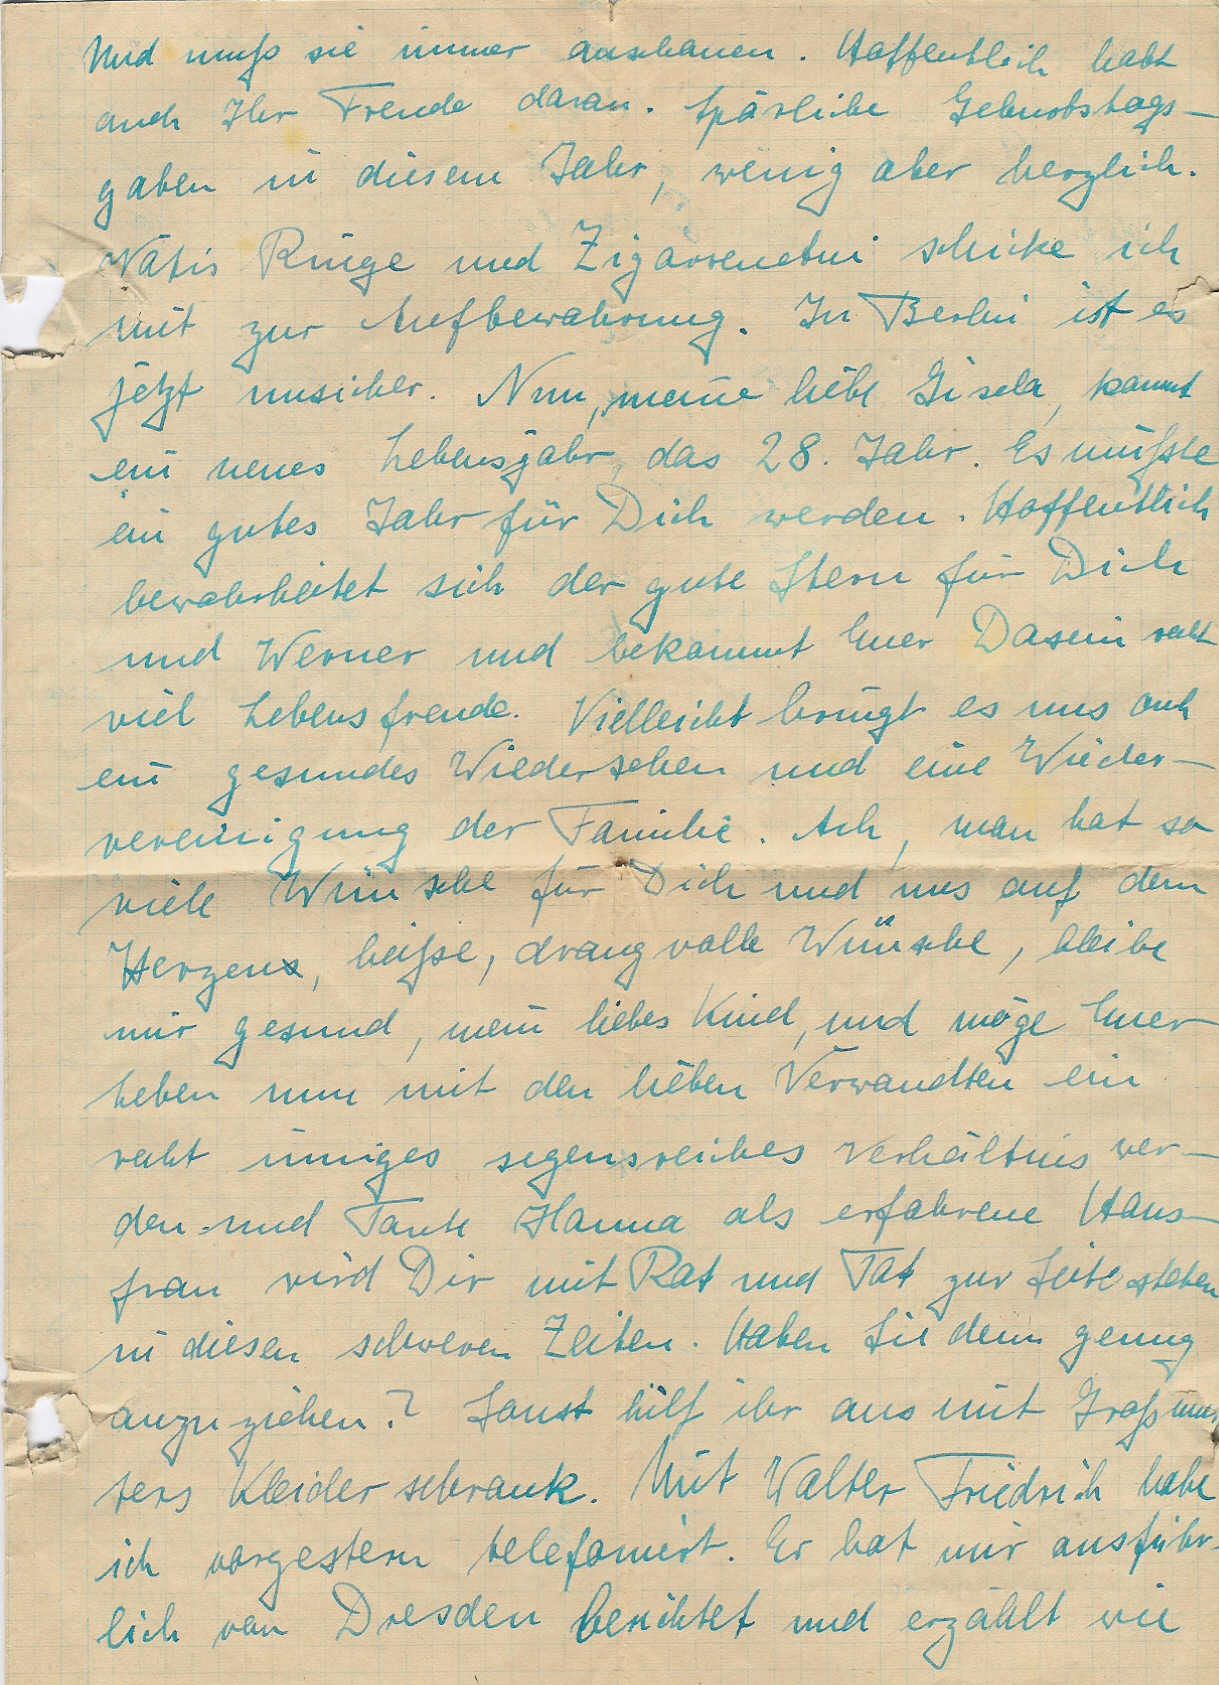 Und muß sie immer anschauen. Hoffentlich habt
auch Ihr Freude daran. Spärliche Geburtstags-
gaben in diesem Jahr, wenig aber herzlich.
Vatis Ringe und Zigarrenetui schicke ich
mit zur Aufbewahrung. In Berlin ist es
jetzt unsicher. Nun, meine liebe Gisela, kommt
ein neues Lebensjahr, das 28. Jahr. Es müßte
ein gutes Jahr für Dich werden. Hoffentlich
bewahrheitet sich der gute Stern für Dich
und Werner und bekommt Euer Dasein recht
viel Lebensfreude. Vielleicht bringt es uns auch
ein gesundes Wiedersehen und eine Wieder-
vereinigung der Familie. Ach, man hat so
viele Wünsche für Dich und uns auf dem
Herzen, heiße, drangvolle Wünsche, bleibe
mir gesund, mein liebes Kind, und möge Euer
Leben nun mit den lieben Verwandten ein
recht inniges segensreiches Verhältnis wer-
den und Tante Hanna als erfahrene Haus-
frau wird Dir mit Rat und Tat zur Seite stehen
in diesen schweren Zeiten. Haben Sie denn genug
anzuziehen? Sonst hilf ihr aus mit Großmut-
ters Kleiderschrank. Mit Walter Friedrich habe
ich vorgestern telefoniert. Er hat mir ausführ-
lich von Dresden berichtet und erzählt wie